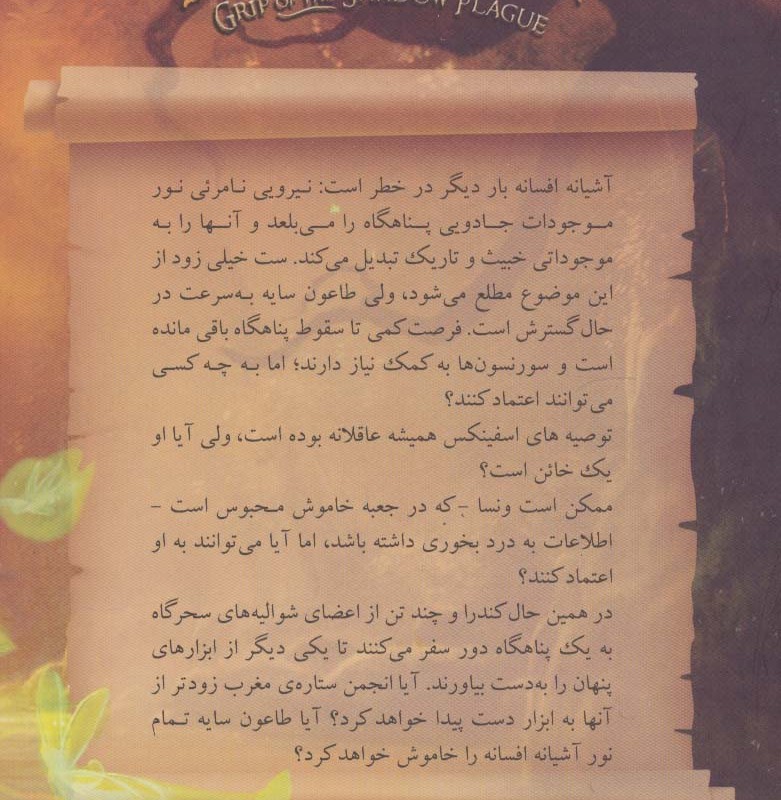 GRIP OF THE SHADOW PLAGUE
آشیانه افسانه بار دیگر در خطر است: نیرویی نامرئی نور
موجودات جادویی پناهگاه را می‌بلعد و آنها را به
موجوداتی خبیث و تاریک تبدیل می‌کند. ست خیلی زود از
این موضوع مطلع می‌شود، ولی طاعون سایه به‌سرعت در
حال گسترش است. فرصت کمی تا سقوط پناهگاه باقی مانده
است و سورنسون‌ها به کمک نیاز دارند؛ اما به چه کسی
می‌توانند اعتماد کنند؟
توصیه های اسفینکس همیشه عاقلانه بوده است، ولی آیا او
یک خائن است؟
ممکن است ونسا – که در جعبه خاموش محبوس است –
اطلاعات به درد بخوری داشته باشد، اما آیا می‌توانند به او
اعتماد کنند؟
در همین حال کندرا و چند تن از اعضای شوالیه‌های سحرگاه
به یک پناهگاه دور سفر می‌کنند تا یکی دیگر از ابزارهای
پنهان را به‌دست بیاورند. آیا انجمن ستاره‌ی مغرب زودتر از
آنها به ابزار دست پیدا خواهد کرد؟ آیا طاعون سایه تمام
نور آشیانه افسانه را خاموش خواهد کرد؟